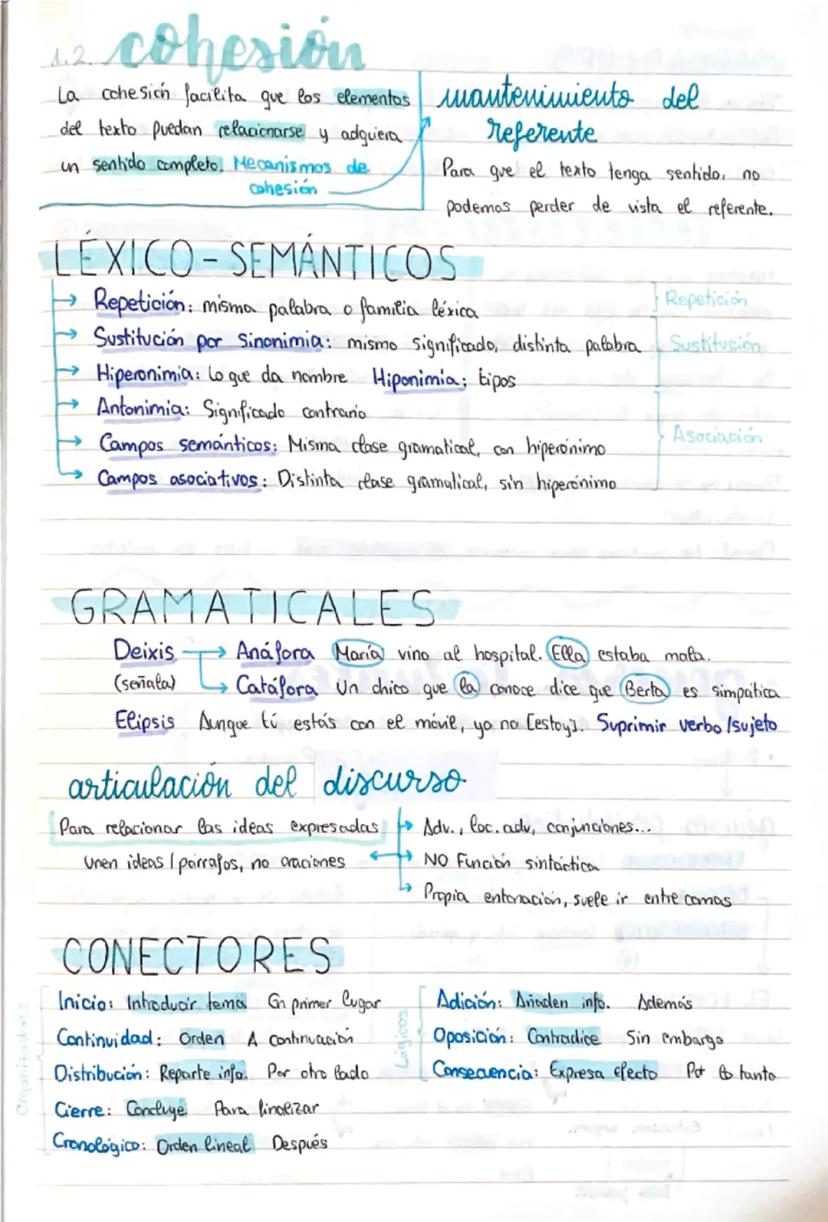 1.2. cohesión
La cohesión facilita que los elementos
del texto puedan relacionarse y adquiera
un sentido completo. Mecanismos de
cohesión
mantenimiento del
referente
Para que el texto tenga sentido, no
podemos perder de vista el referente.
LÉXICO-SEMÁNTICOS
Repetición: misma palabra o familia léxica
Sustitución por Sinonimia: mismo significado, distinta palabra
Hiperonimia: Lo que da nombre Hiponimia; tipos
Antonimia: Significado contrario
Campos semánticos: Misma clase gramatical, con hiperónimo
Campos asociativos: Distinta clase gramatical, sin hiperónimo
Repetición
Sustitución
Asociación
GRAMATICALES
Deixis Anáfora María vino al hospital. Ella estaba mala.
(señala) Catáfora Un chico que la conoce dice que Berta es simpática
Elipsis Aunque tú estás con el móvil, yo no [estoy]. Suprimir verbo/sujeto
articulación del discurso
Para relacionar las ideas expresadas
unen ideas/párrafos, no oraciones
Adv., loc. adv, conjunciones...
NO Función sintáctica
Propia entonación, suele ir entre comas
CONECTORES
Organizadores
Inicio: Introducir tema En primer lugar
Continuidad: Orden A continuación
Distribución: Reparte info. Por otro lado
Cierre: Concluye Para finalizar
Cronológico: Orden lineal Después
Lógicos
Adición: Añaden info. Además
Oposición: Contradice Sin embargo
Consecuencia: Expresa efecto Por lo tanto